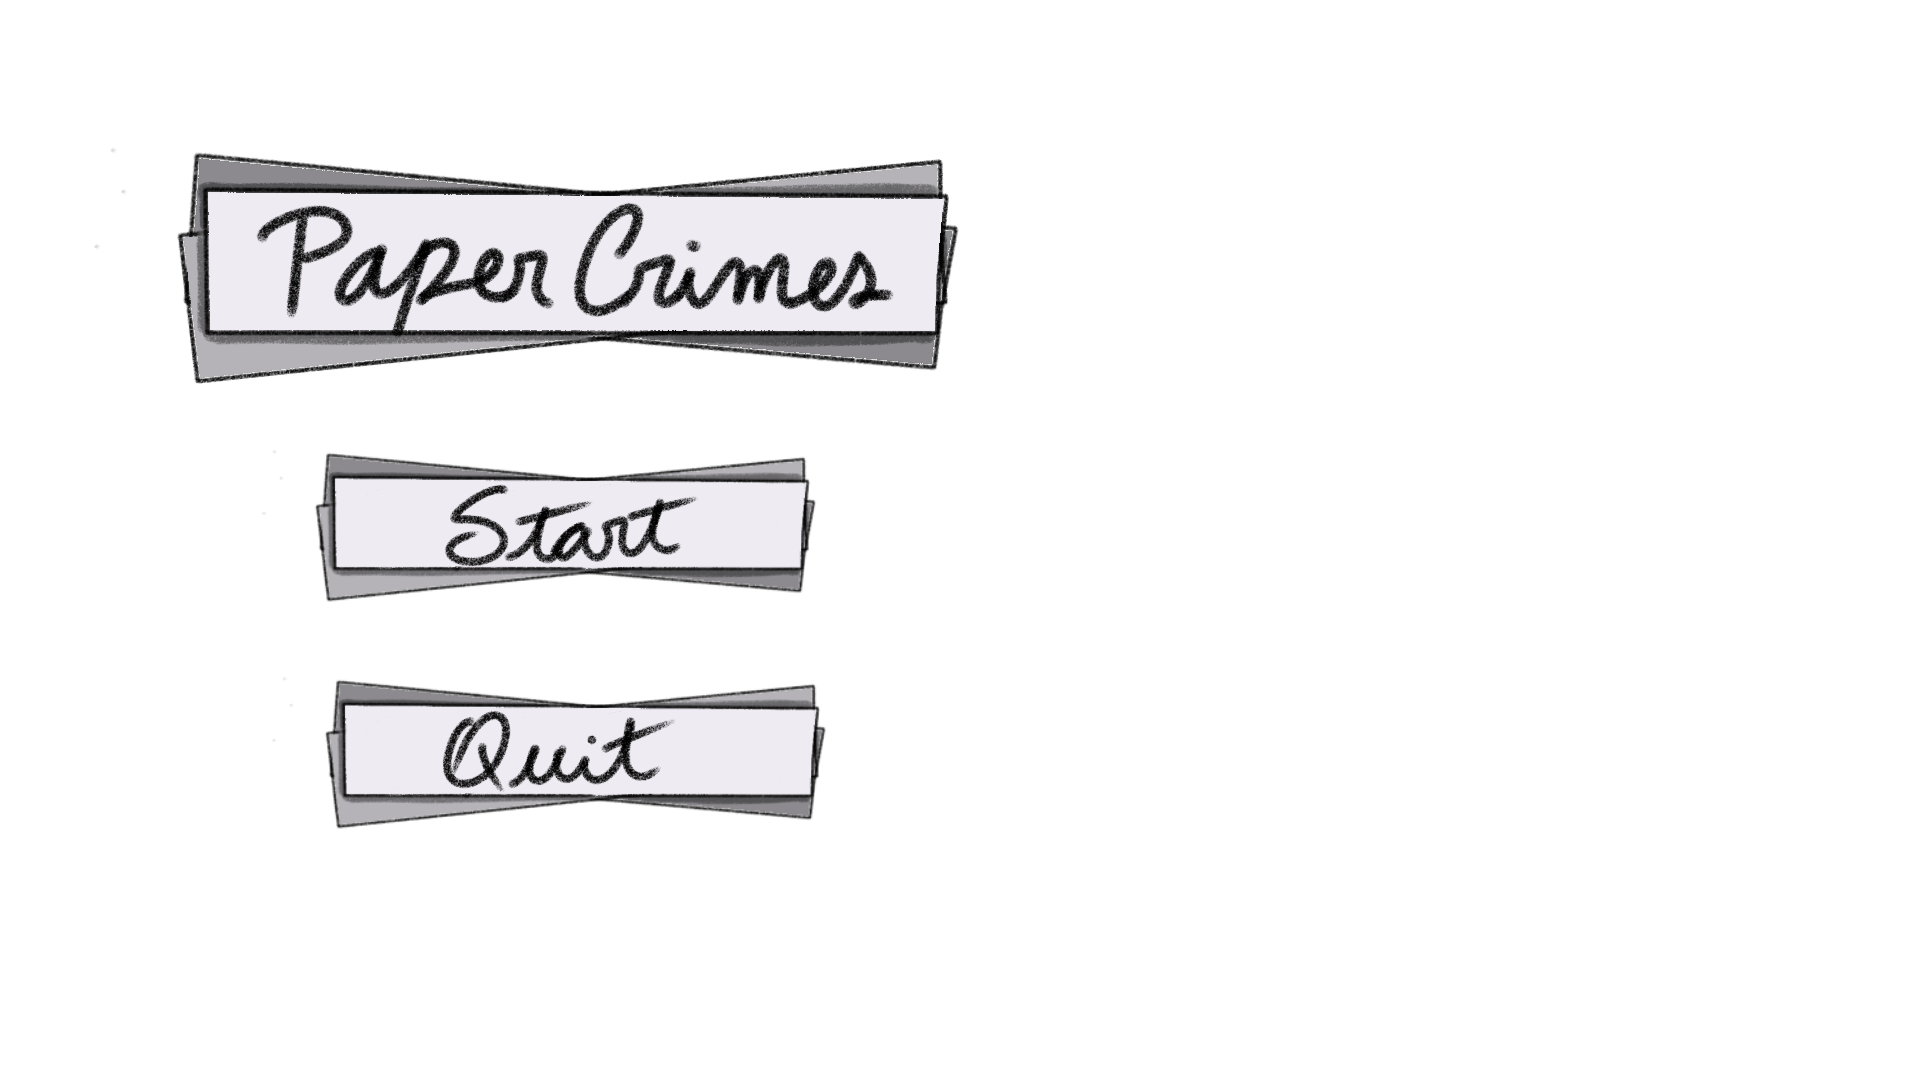 Paper Crimes
Start
Quit